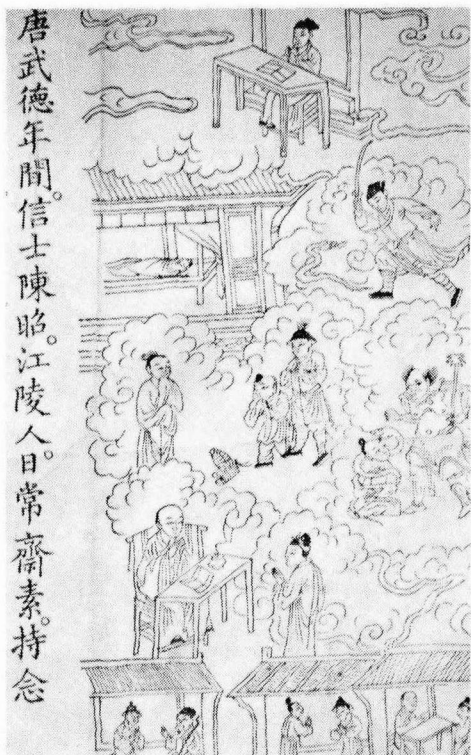 唐武德年間。信士陳昭。江陵人。日常齋素。持念